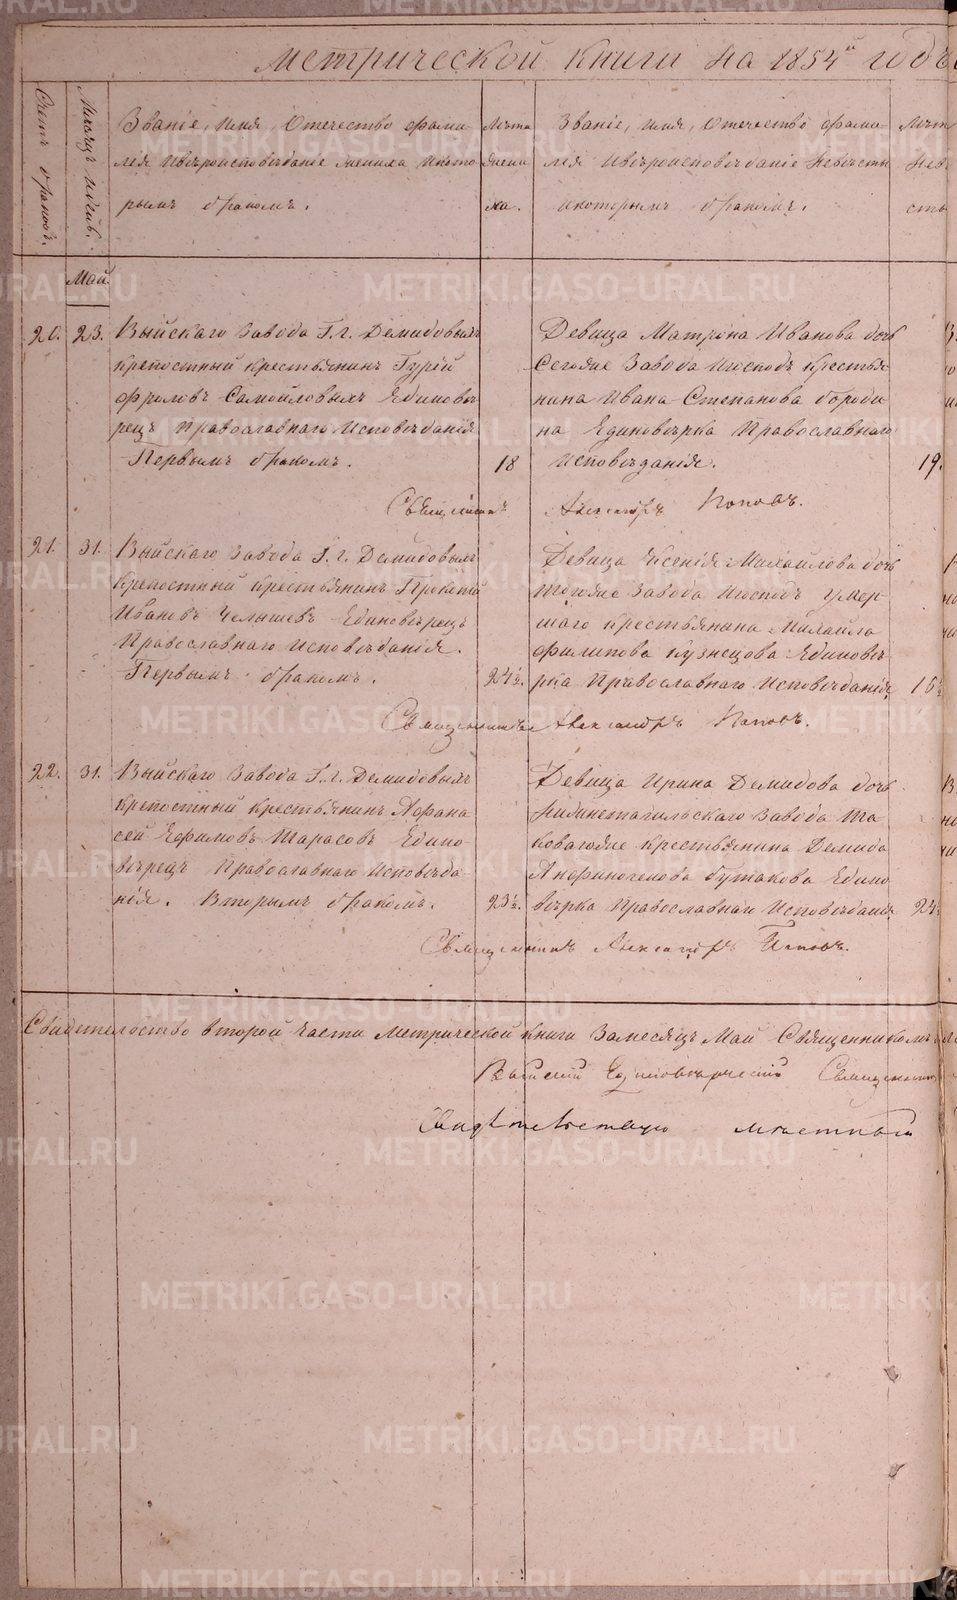 Метрической книги на 1854й годъ
Счетъ браковъ.
Мѣсяцъ и дни.
Званіе, имя, отечество фами-
лія и вѣроисповѣданіе жениха и кото-
рымъ бракомъ.
Лѣта
жени
ха.
Званіе, имя, отечество фами-
лія и вѣроисповѣданіе невѣсты
и которымъ бракомъ.
Лѣта
невѣ
сты
Май
20. 23.
Выйскаго завода Г. г. Демидовыхъ
крепостный крестьянинъ Гурій
Фроловъ Самойловыхъ Единовѣ
рецъ Православнаго исповѣданія
Первымъ бракомъ.
18
Девица Матрона Иванова дочь
Сегоже завода Господъ крестья
нина Ивана Степанова Бороди
на Единовѣрка Православнаго
исповѣданія.
19.
Священникъ Александръ Поповъ.
21. 31.
Выйскаго завода Г. г. Демидовыхъ
крепостный крестьянинъ Прокопій
Ивановъ Челышевъ Единовѣрецъ
Православнаго исповѣданія.
Первымъ бракомъ.
24½
Девица Ксенія Михайлова дочь
тогоже завода Господъ умер-
шаго крестьянина Михайла
Филипова Кузнецова Единовѣ-
рка Православнаго исповѣданія
16½
Священникъ Александръ Поповъ.
22. 31.
Выйскаго завода Г. г. Демидовыхъ
крепостный крестьянинъ Афана
сей Ефимовъ Тарасовъ Едино-
вѣрецъ Православнаго исповѣда-
нія. Вторымъ бракомъ.
23½
Девица Ирина Демидова дочь
Нижнетагильскаго завода та
ковагоже крестьянина Демида
Анфиногенова Бутакова Едино
вѣрка Православнаго исповѣданія
24.
Священникъ Александръ Поповъ.
Свидетельство второй части Метрической книги за месяцъ Май Священникомъ
Выйской Единоверческій Священникъ
Свидѣтельствую местный
METRIKI.GASO-URAL.RU